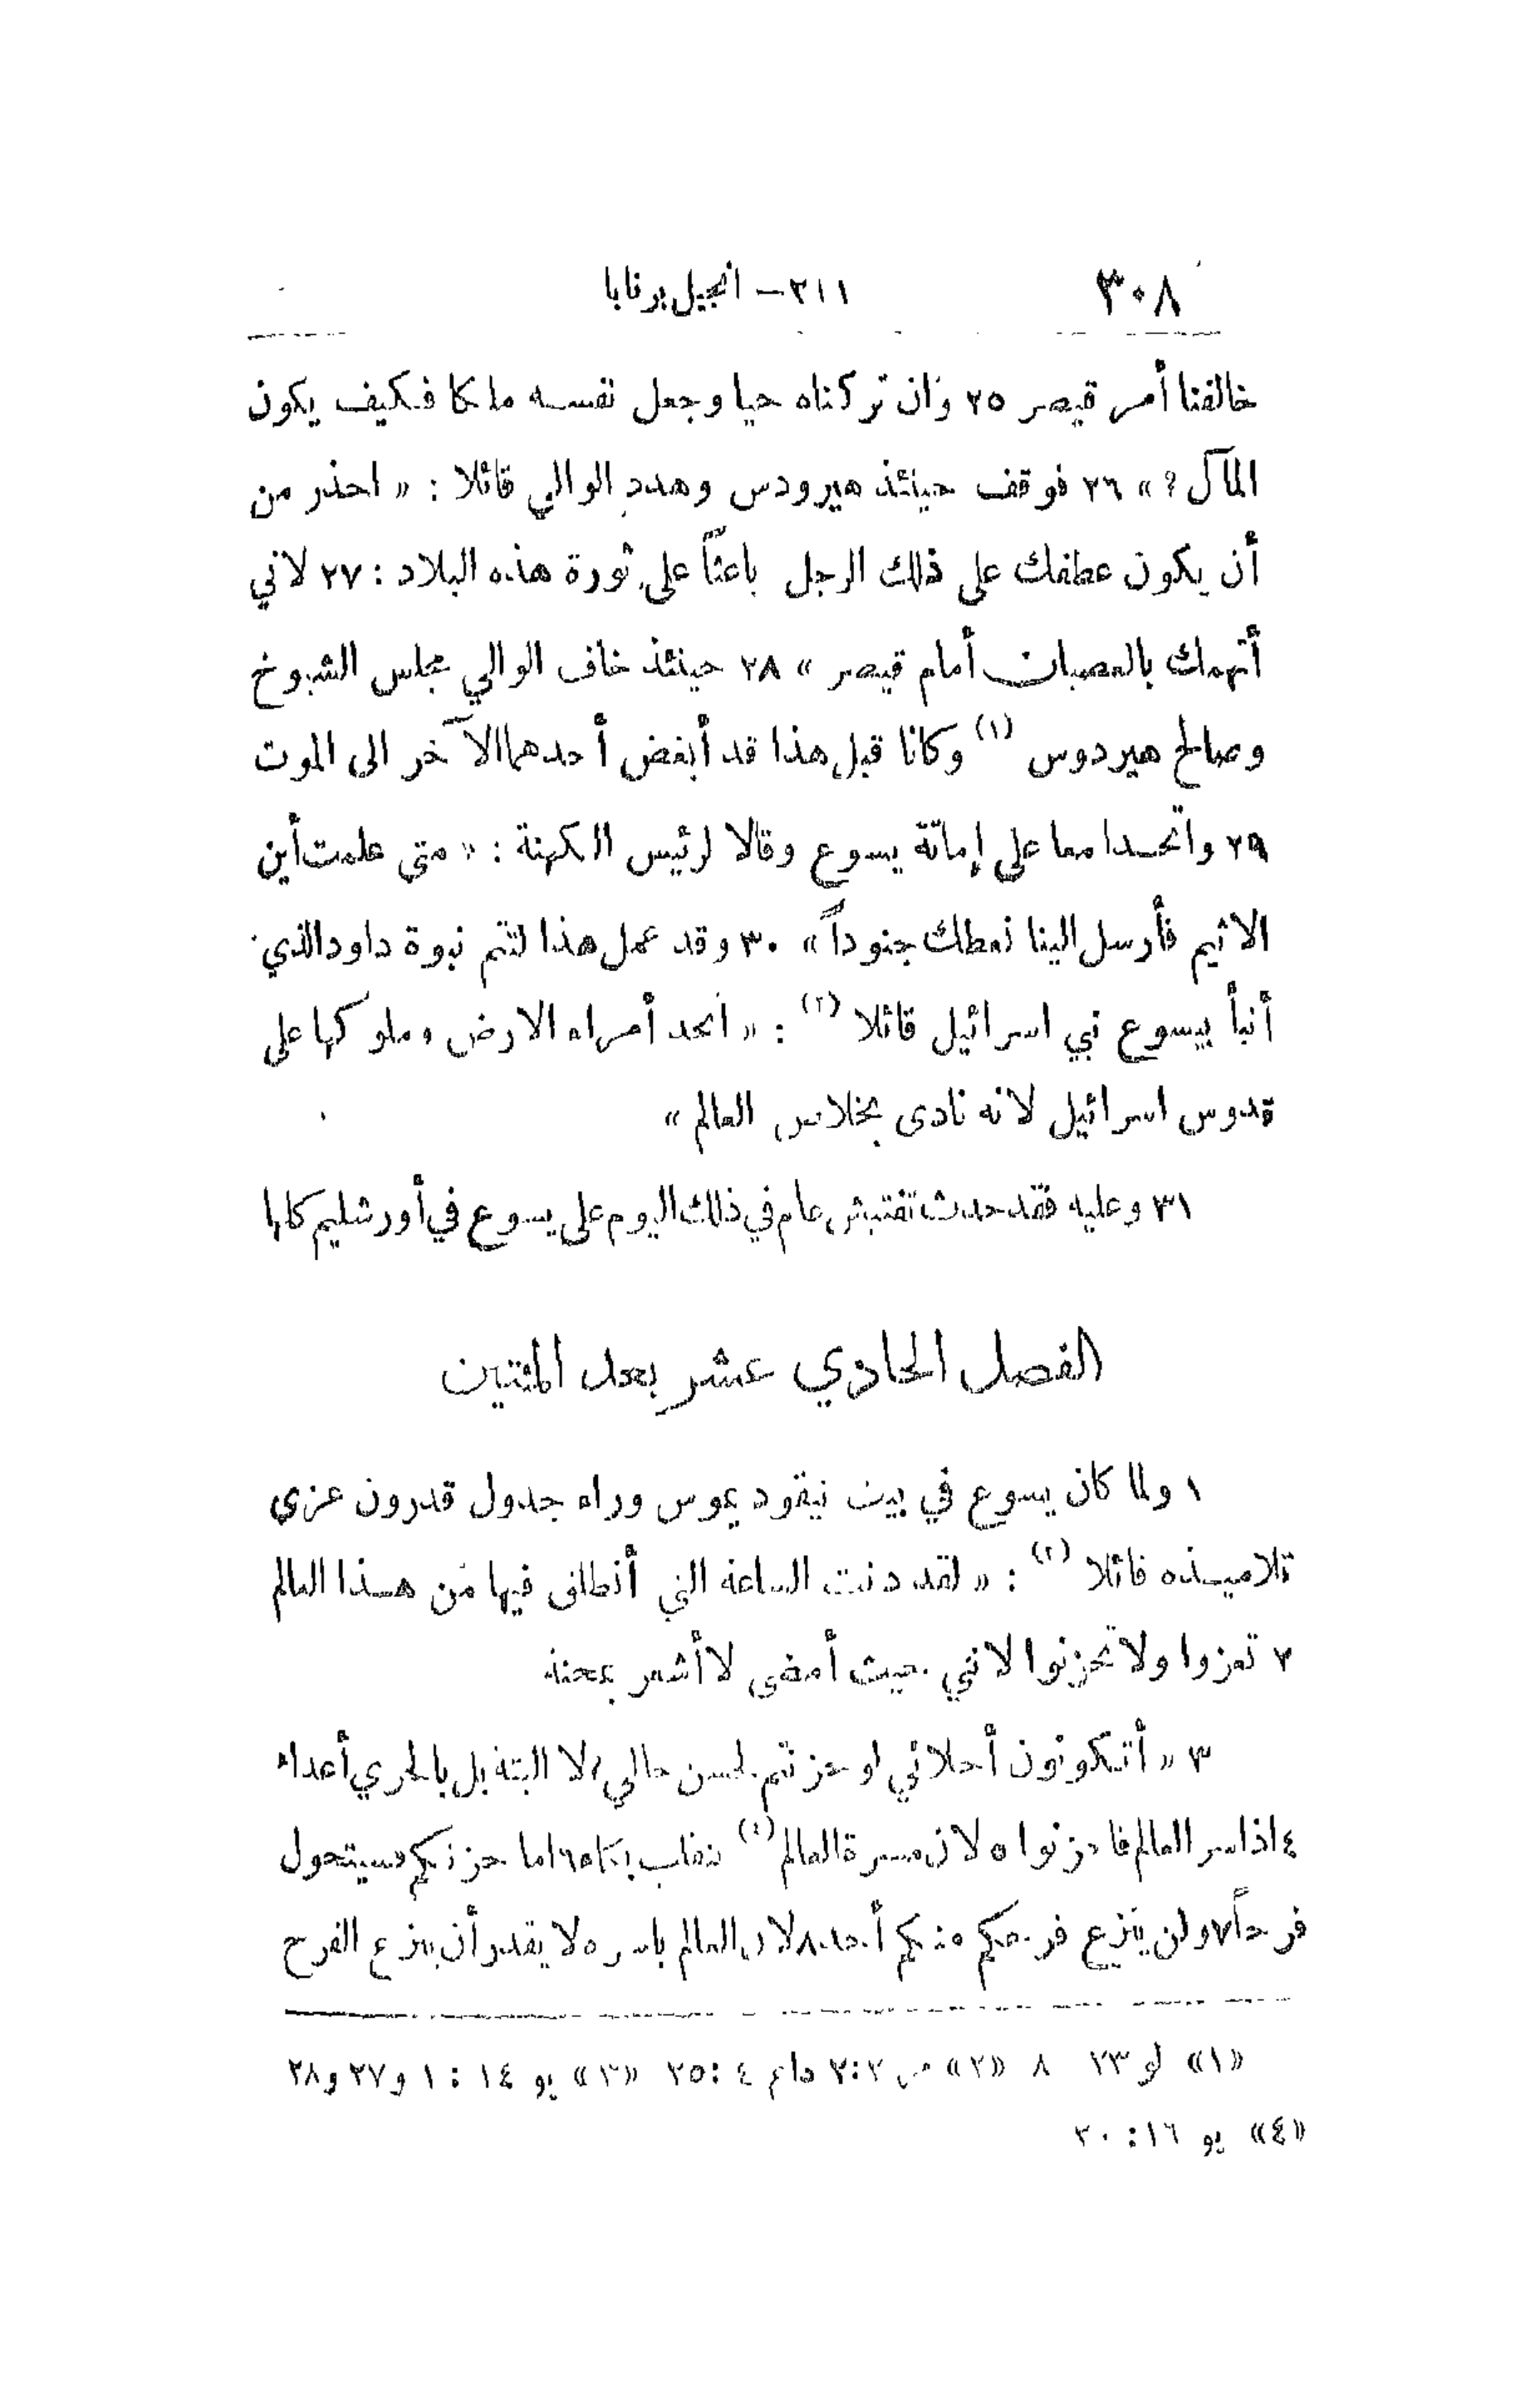 ٣٠٨ ٢١١ – انجيل برنابا
خالفنا أمر قيصر ٢٥ وان تركناه حيا وجعل نفسه ملكا فكيف يكون
المآل ؟ » ٢٦ فوقف حينئذ هيرودس وهدد الوالي قائلا : « احذر من
أن يكون عطفك على ذلك الرجل باعثاً على ثورة هذه البلاد : ٢٧ لاني
أتهمك بالعصيان أمام قيصر » ٢٨ حينئذ خاف الوالي مجلس الشيوخ
وصالح هيردوس (١) وكانا قبل هذا قد أبغض أحدهما الآخر الى الموت
٢٩ واتحدا معا على إماتة يسوع وقالا لرئيس الكهنة : « متى علمت أين
الاثيم فأرسل الينا نعطك جنوداً » ٣٠ وقد عمل هذا لتتم نبوة داود الذي
أنبأ بيسوع نبي اسرائيل قائلا (٢) : « اتحد أمراء الارض وملوكها على
قدوس اسرائيل لانه نادى بخلاص العالم »
٣١ وعليه فقد حدث تفتيش عام في ذلك اليوم على يسوع في أورشليم كلها
الفصل الحادي عشر بعد المئتين
١ ولما كان يسوع في بيت نيقوديموس وراء جدول قدرون عزى
تلاميذه قائلا (٢) : « لقد دنت الساعة التي أنطلق فيها من هذا العالم
٢ تعزوا ولا تحزنوا لانني حيث أمضي لا أشعر بمحنة
٣ « أتكونون أخلائي لو حزنتم لحسن حالي لا البتة بل بالحري أعداء
٤ اذا سر العالم فاحزنوا ٥ لان مسرة العالم (٤) تنقلب بكاء ٦ اما حزنكم فسيتحول
فرحاً ٧ ولن ينزع فرحكم منكم أحد ٨ لان العالم باسره لا يقدر أن ينزع الفرح
«١» لو ٢٣ ٨ «٢» ٢:٢ واع ٤ :٢٥ «٣» يو ١٤ : ١ و٢٧ و٢٨
«٤» يو ١٦ :٢٠